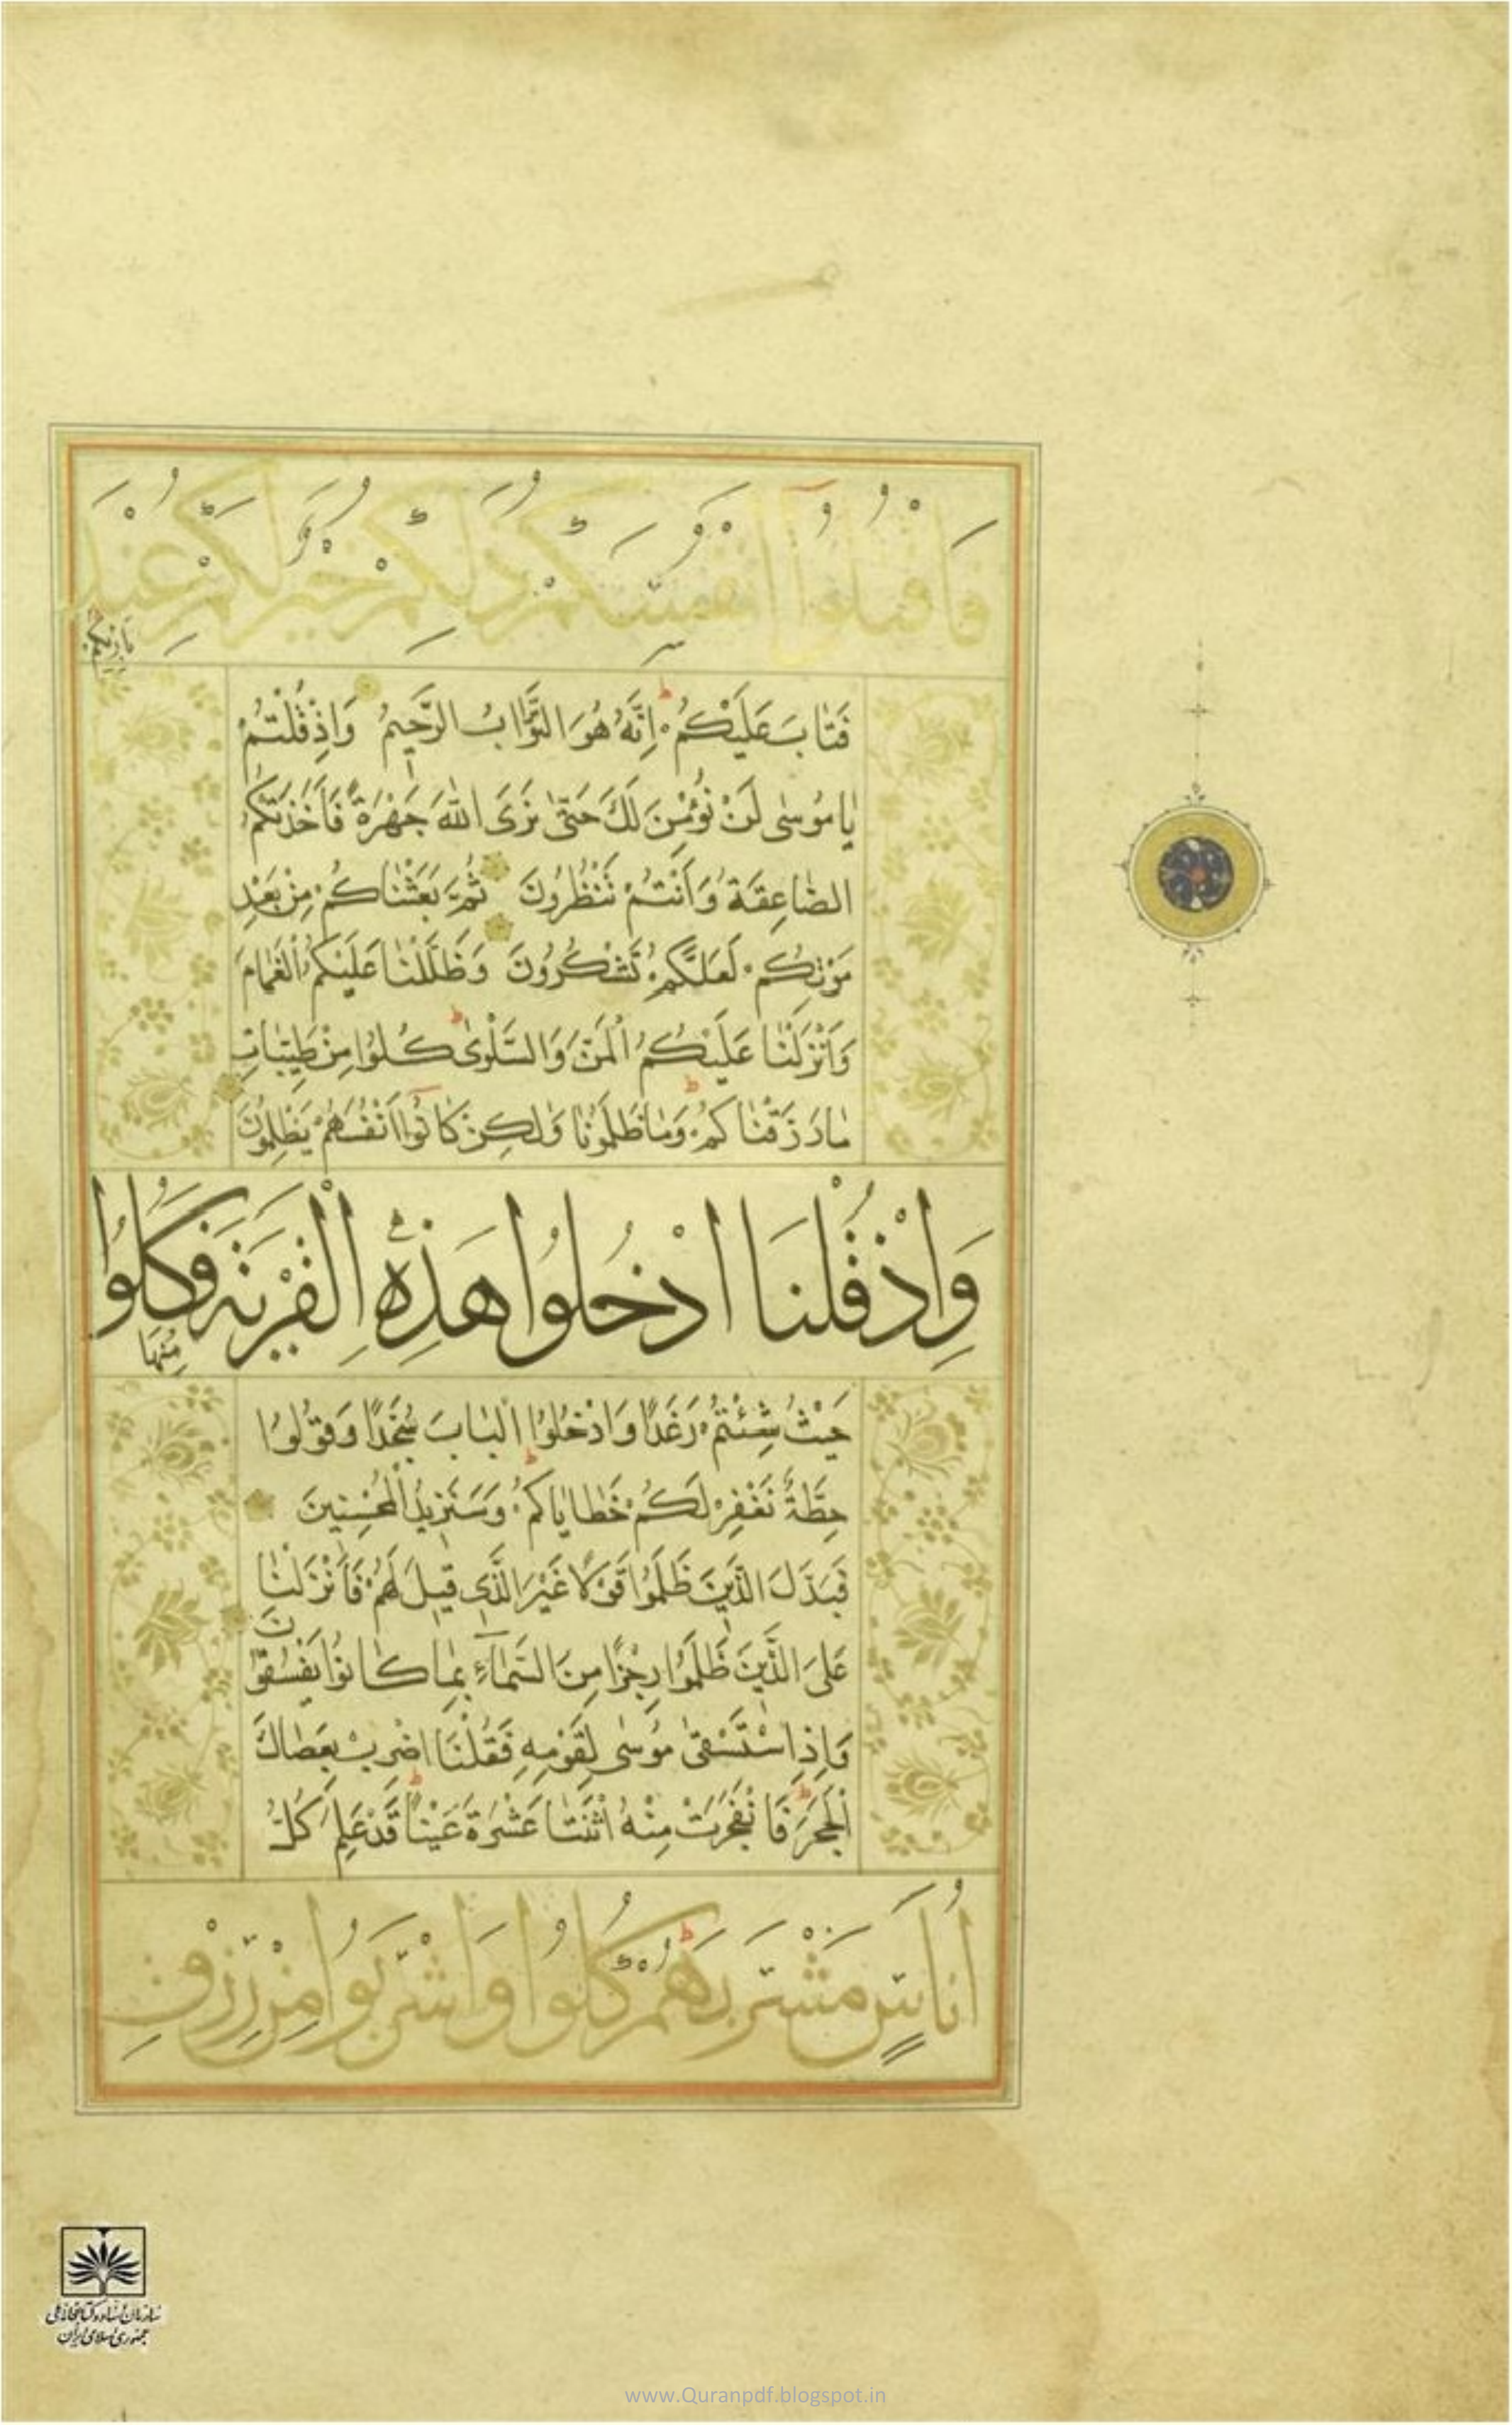 فَاقْتُلُوٓا اَنْفُسَكُمْ ذٰلِكُمْ خَيْرٌ لَكُمْ عِنْدَ
بَارِئِكُمْ
فَتَابَ عَلَيْكُمْ اِنَّهُ هُوَ التَّوَّابُ الرَّحِيمُ وَاِذْ قُلْتُمْ
يَا مُوسٰى لَنْ نُؤْمِنَ لَكَ حَتّٰى نَرَى اللّٰهَ جَهْرَةً فَاَخَذَتْكُمُ
الصَّاعِقَةُ وَاَنْتُمْ تَنْظُرُونَ ثُمَّ بَعَثْنَاكُمْ مِنْ بَعْدِ
مَوْتِكُمْ لَعَلَّكُمْ تَشْكُرُونَ وَظَلَّلْنَا عَلَيْكُمُ الْغَمَامَ
وَاَنْزَلْنَا عَلَيْكُمُ الْمَنَّ وَالسَّلْوٰى كُلُوا مِنْ طَيِّبَاتِ
مَا رَزَقْنَاكُمْ وَمَا ظَلَمُونَا وَلٰكِنْ كَانُوٓا اَنْفُسَهُمْ يَظْلِمُونَ
وَاِذْ قُلْنَا ادْخُلُوا هَذِهِ الْقَرْيَةَ فَكُلُوا
مِنْهَا
حَيْثُ شِئْتُمْ رَغَدًا وَادْخُلُوا الْبَابَ سُجَّدًا وَقُولُوا
حِطَّةٌ نَغْفِرْ لَكُمْ خَطَايَاكُمْ وَسَنَزِيدُ الْمُحْسِنِينَ
فَبَدَّلَ الَّذِينَ ظَلَمُوا قَوْلًا غَيْرَ الَّذِي قِيلَ لَهُمْ فَاَنْزَلْنَا
عَلَى الَّذِينَ ظَلَمُوا رِجْزًا مِنَ السَّمَآءِ بِمَا كَانُوا يَفْسُقُونَ
وَاِذِ اسْتَسْقٰى مُوسٰى لِقَوْمِهِ فَقُلْنَا اضْرِبْ بِعَصَاكَ
الْحَجَرَ فَانْفَجَرَتْ مِنْهُ اثْنَتَا عَشْرَةَ عَيْنًا قَدْ عَلِمَ كُلُّ
اُنَاسٍ مَشْرَبَهُمْ كُلُوا وَاشْرَبُوا مِنْ رِزْقِ
سازمان اسناد و کتابخانه ملی
جمهوری اسلامی ایران
www.Quranpdf.blogspot.in